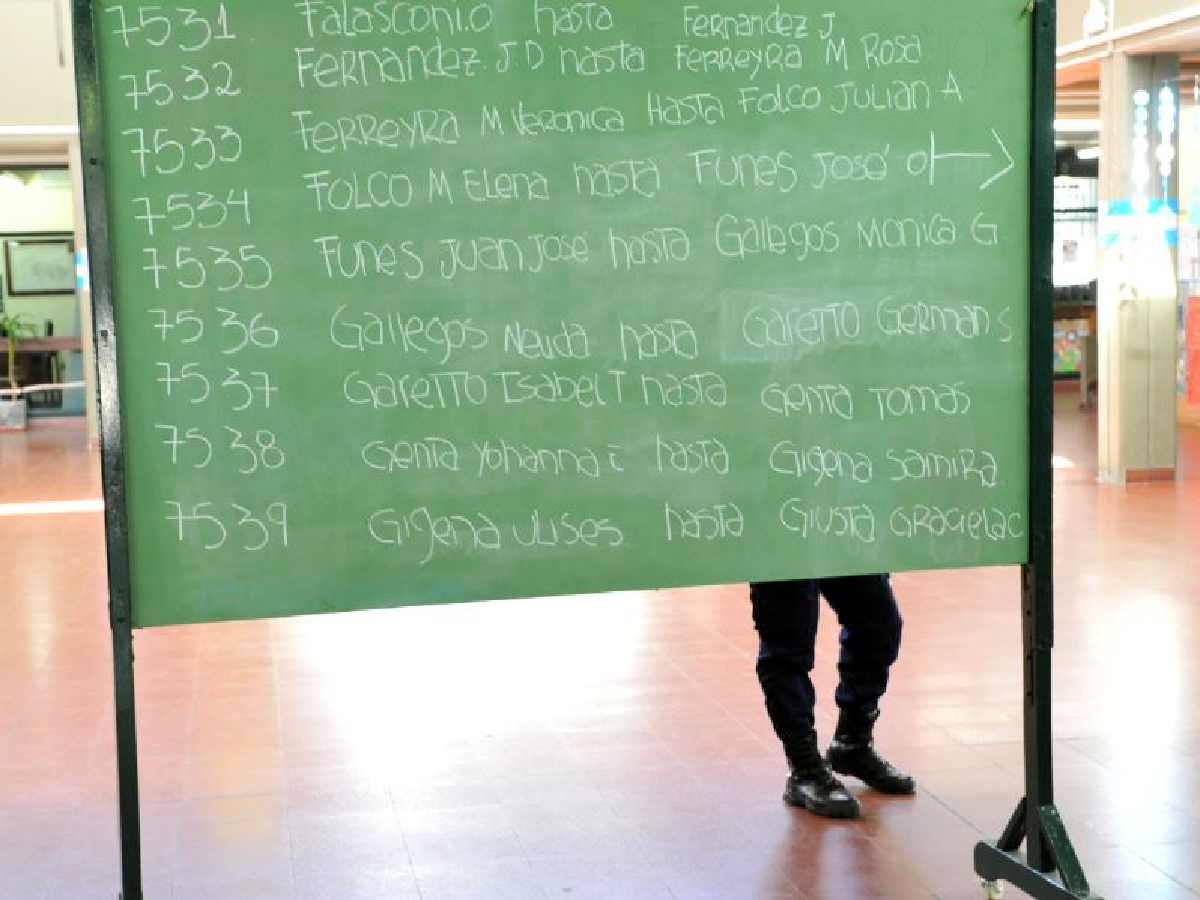 7531 Falasconi.O hasta Fernandez J
7532 Fernandez J.D hasta Ferreyra M Rosa
7533 Ferreyra M Veronica Hasta Folco Julian A
7534 Folco M Elena hasta Funes José
7535 Funes Juan Jose hasta Gallegos Monica G
7536 Gallegos Neuda hasta Garetto German S
7537 Garetto Isabel T hasta Genta Tomas
7538 Genta Yohanna E hasta Gigena Samira
7539 Gigena Ulises hasta Giusta Graciela C